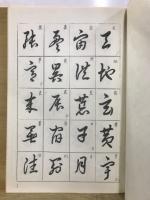 天地玄黃宇
宙洪荒日月
盈昃辰宿列
張寒來暑往